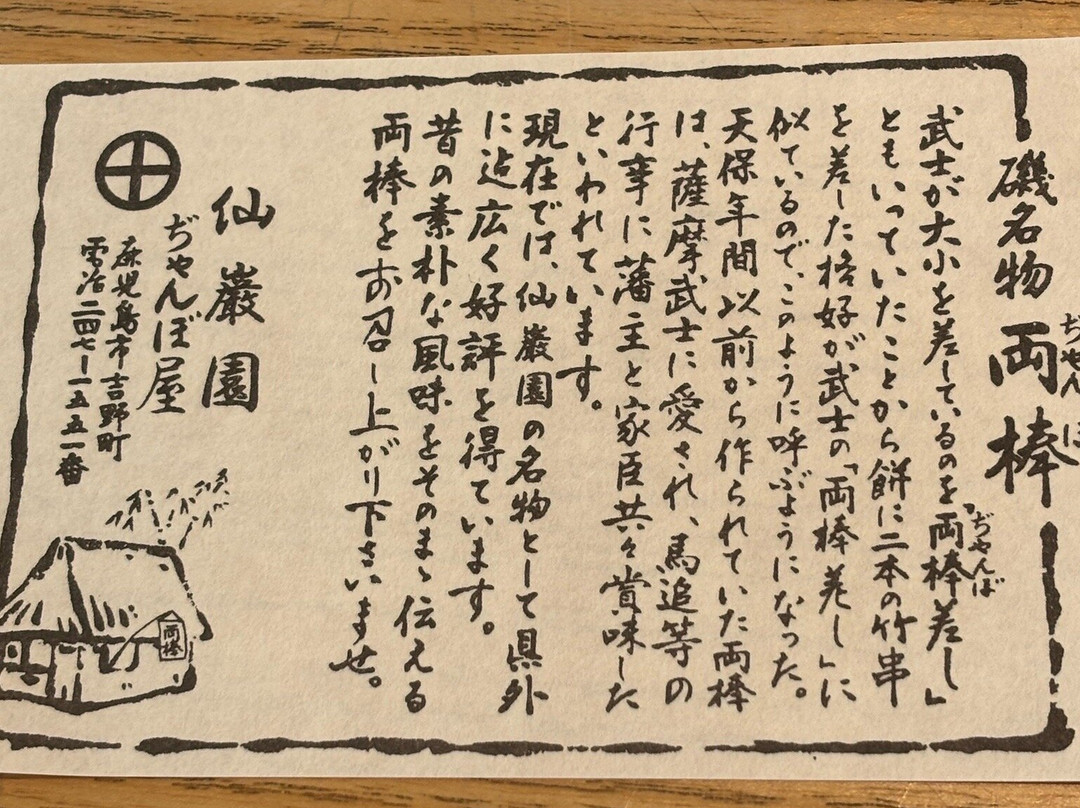 磯名物 両棒
ぢゃんぼ
武士が大小を差しているのを「両棒差し」
ぢゃんぼ
ともいっていたことから餅に二本の竹串
を差した格好が武士の「両棒差し」に
似ているので、このように呼ぶようになった。
天保年間以前から作られていた両棒
は、薩摩武士に愛され、馬追等の
行事に藩主と家臣共々賞味した
といわれています。
現在では、仙巌園の名物として県外
に迄広く好評を得ています。
昔の素朴な風味をそのまゝ伝える
両棒をお召し上がり下さいませ。
仙巌園
ぢゃんぼ屋
鹿児島市吉野町
電話二四七-一五五一番
両棒